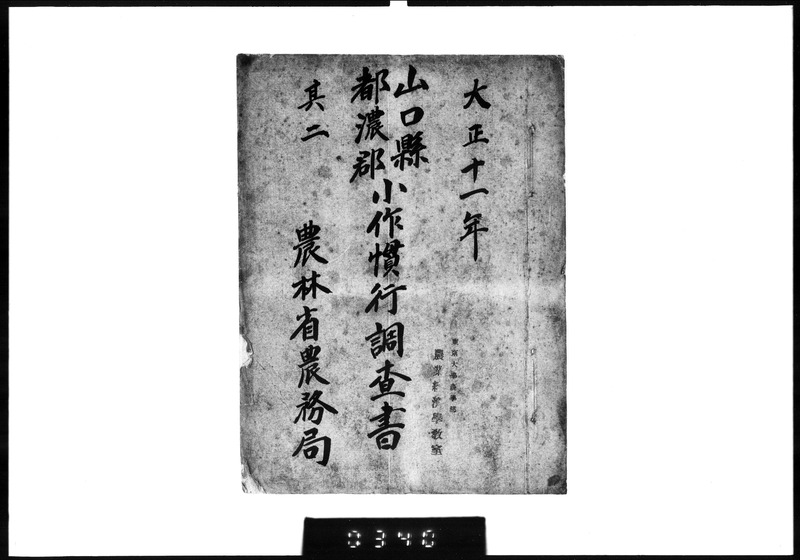 大正十一年
山口縣
都濃郡
小作慣行調査書
其二
農林省農務局
東京大學農學部
農業經濟學教室
0340